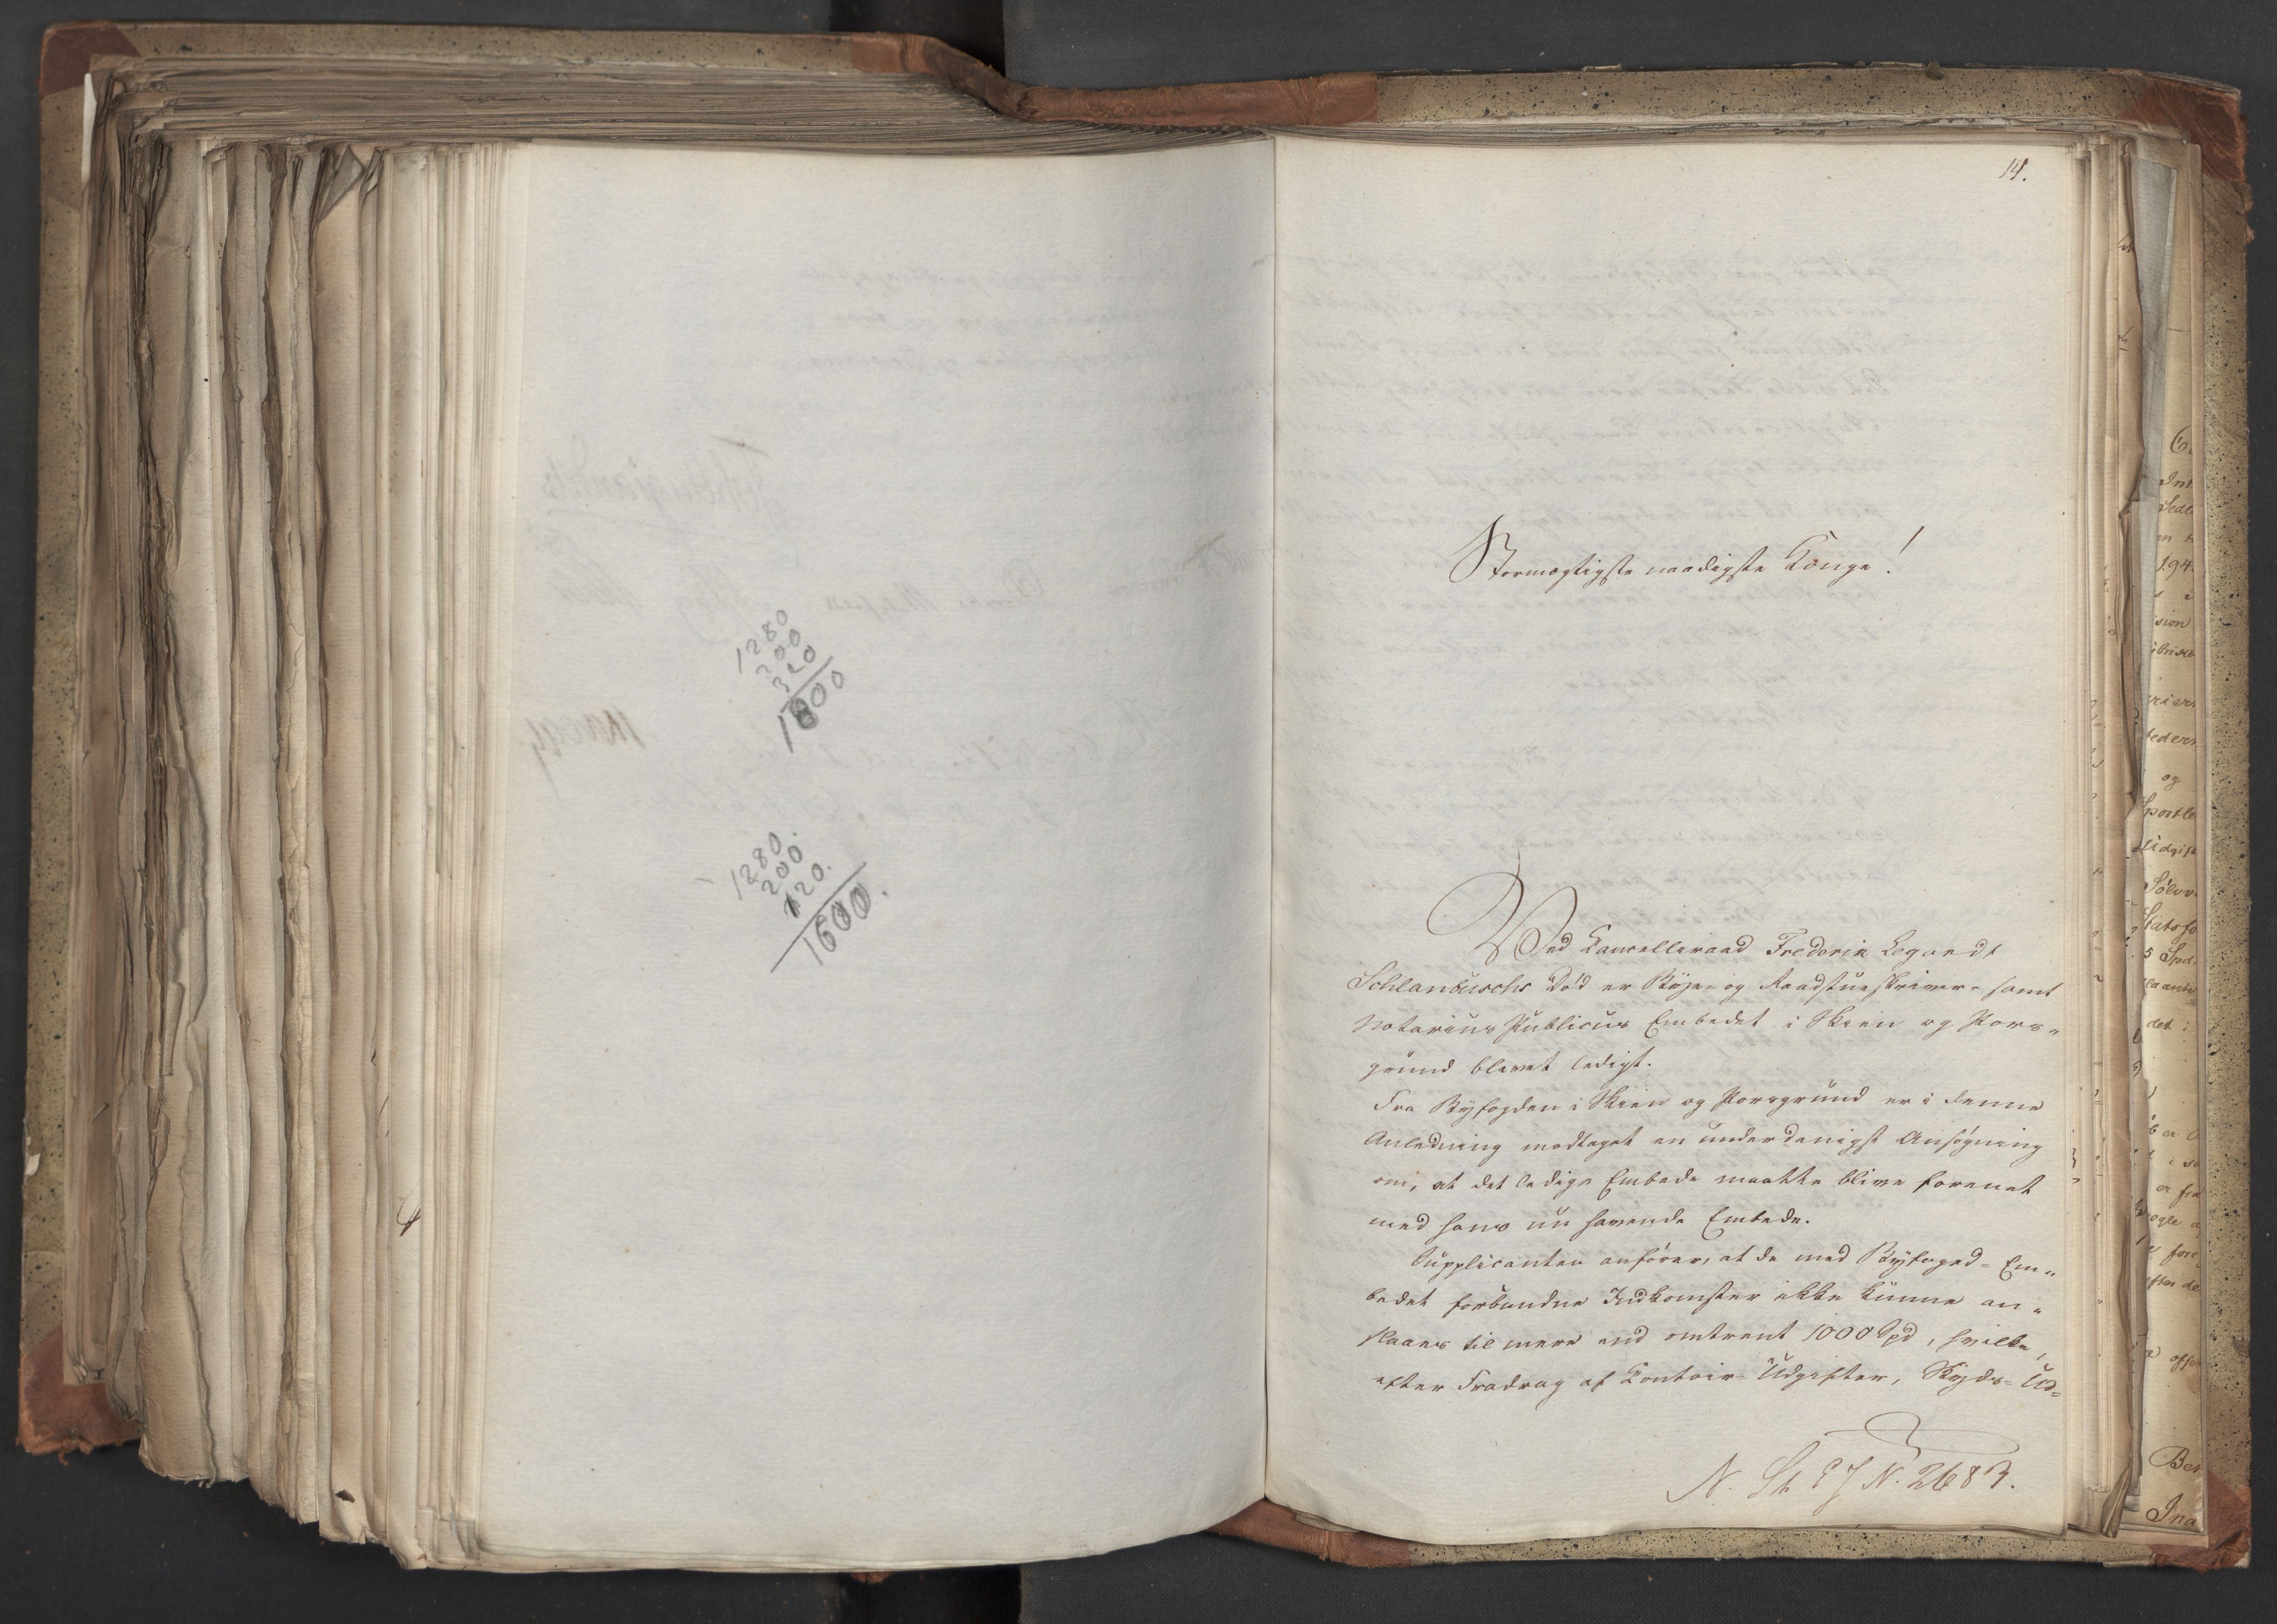 1280
200
320
1800
1280.
200.
120.
1600.
14.
Stormægtigste naadigste Konge!
Ved Kancelleraad Frederik Legandt
Schlanbuschs Död er Böje- og Raadstueskriver- samt
Notarius Publicus Embedet i Skien og Pors-
grund blevet ledigt.
Fra Byfogden i Skien og Porsgrund er i denne
Anledning modtaget en underdanigst Ansögning
om, at det ledige Embede maatte blive forenet
med hans nu havende Embede.
Supplicanten anförer, at de med Byfoged- Em-
bedet forbundne Indkomster ikke kunne an-
slaaes til mere end omtrent 1000 Spd, hvilke,
efter Fradrag af Contoir- Udgifter, Skyds- Ud-
N. St. E J N. 2683.